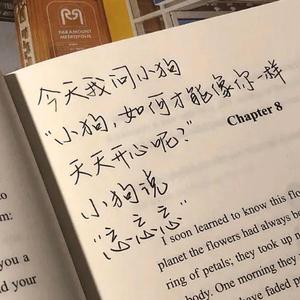 PARAMOUNT
METROPOLIS
今天我问小狗
“小狗，如何才能像你一样
天天开心呢?”
小狗说
“忘忘忘”
Chapter 8
I soon learned to know this flow
planet the flowers had always
ring of petals; they took up n
body. One morning they
have faded p
m:
you a
ld your